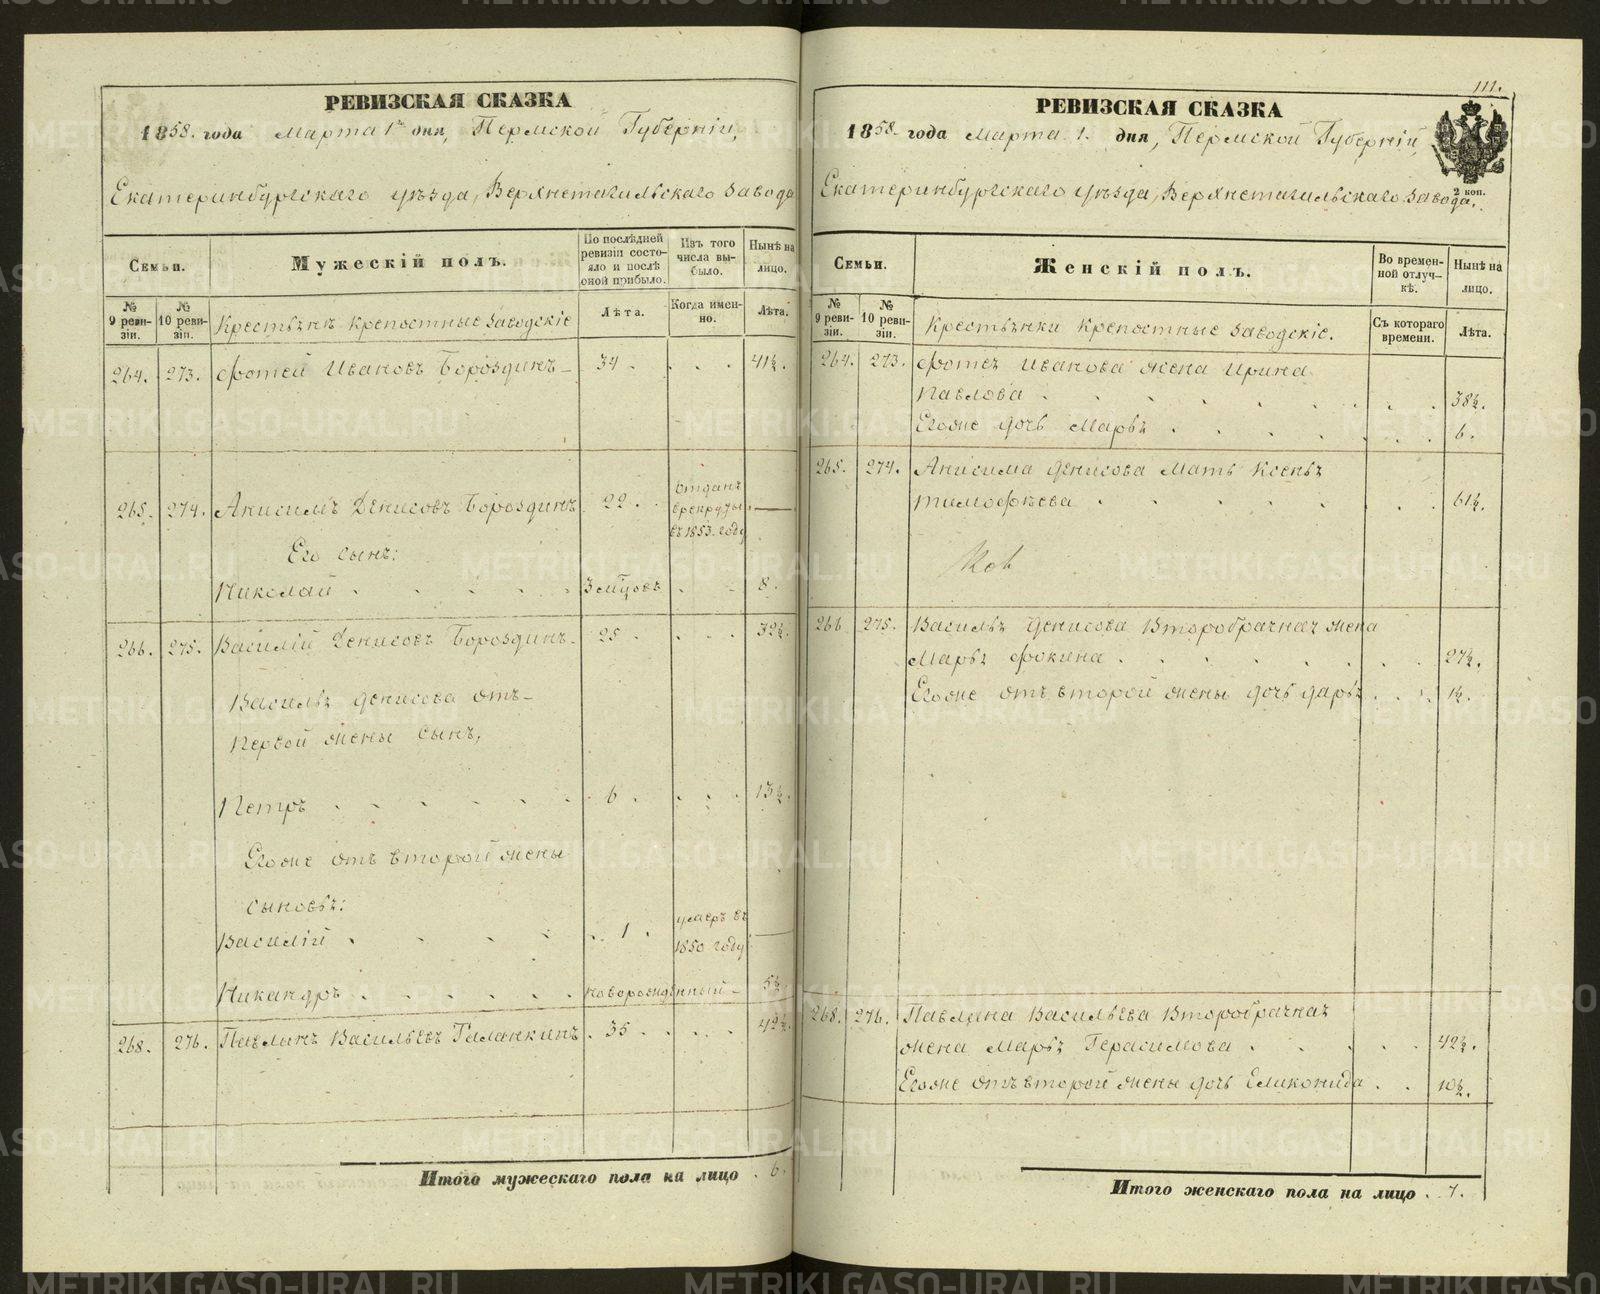 РЕВИЗСКАЯ СКАЗКА
1858. года Марта 1го дня, Пермской Губерніи,
Екатеринбургскаго уѣзда, Верхнетагильскаго завода
Семьи.
Мужескій полъ.
По послѣдней ревизіи состояло и послѣ оной прибыло.
Изъ того числа выбыло.
Нынѣ на лицо.
№ 9 ревизіи.
№ 10 ревизіи.
Крестьянъ крепостные заводскіе
Лѣта.
Когда именно.
Лѣта.
264. 273. Фотей Ивановъ Бороздинъ 34 . . . 41½.
265. 274. Анисимъ Денисовъ Бороздинъ 22 . отданъ в рекруты въ 1853. году —
Его сынъ:
Николай . . . . . 3 мѣцовъ . . 8.
266. 275. Василій Денисовъ Бороздинъ. 25 . . . 32½.
Василья Денисова отъ
первой жены сынъ,
Петръ . . . . . . 6 . . . . 13½.
Егоже отъ второй жены
сыновья:
Василій . . . . . 1 . умеръ въ 1850 году —
Никандръ . . . . . новорожденный 5½
268. 276. Павлинъ Васильевъ Галанкинъ . 35 . . . . 42½.
Итого мужескаго пола на лицо . 6.
111.
РЕВИЗСКАЯ СКАЗКА
1858. года Марта 1. дня, Пермской Губерніи,
2 коп.
Екатеринбургскаго уѣзда, Верхнетагильскаго завода.
Семьи.
Женскій полъ.
Во временной отлучкѣ.
Нынѣ на лицо.
№ 9 ревизіи.
№ 10 ревизіи.
Крестьянки крепостные заводскіе.
Съ котораго времени.
Лѣта.
264. 273. Фотея Иванова жена Ирина
Павлова . . . . . . . . 38½.
Егоже дочь Марья . . . . . . . 6.
265. 274. Анисима Денисова мать Ксенья
Тимофѣева . . . . . . . 61½.
266 275. Василья Денисова второбрачная жена
Марья Фокина . . . . . . . . 27½.
Егоже отъ второй жены дочь Дарья . . . 1½.
268. 276. Павлина Васильева второбрачная
жена Марья Герасимова . . . . . 42½.
Егоже отъ второй жены дочь Еликонида . . 10½.
Итого женскаго пола на лицо . 7.
METRIKI.GASO-URAL.RU